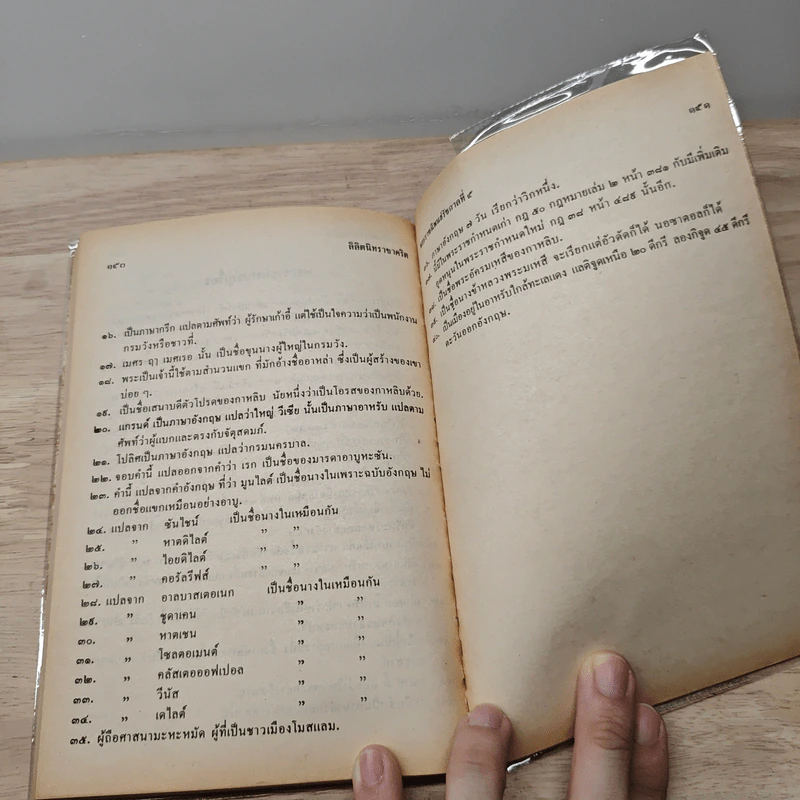 ๑๕๐
ลิลิตนิทราชาคริต
๑๖. เป็นภาษากรีก แปลตามศัพท์ว่า ผู้รักษาเก้าอี้ แต่ใช้เป็นใจความว่าเป็นพนักงาน
กรมวังหรือชาวที่.
๑๗. เมศร ฤๅ เมศเรอ นั้น เป็นชื่อขุนนางผู้ใหญ่ในกรมวัง.
๑๘. พระเป็นเจ้านี้ใช้ตามสำนวนแขก ที่มักอ้างชื่ออาหล่า ซึ่งเป็นผู้สร้างของเขา
บ่อย ๆ.
๑๙. เป็นชื่อเสนาบดีตัวโปรดของกาหลิบ นัยหนึ่งว่าเป็นโอรสของกาหลิบด้วย.
๒๐. แกรนด์ เป็นภาษาอังกฤษ แปลว่าใหญ่ วีเซีย นั้นเป็นภาษาอาหรับ แปลตาม
ศัพท์ว่าผู้แบกและตรงกับจัตุสดมภ์.
๒๑. โปลิศเป็นภาษาอังกฤษ แปลว่ากรมนครบาล.
๒๒. จอบคำนี้ แปลออกจากคำว่า เรก เป็นชื่อของมารดาอาบูหะซัน.
๒๓. คำนี้ แปลจากคำอังกฤษ ที่ว่า มูนไลต์ เป็นชื่อนางในเพราะฉบับอังกฤษ ไม่
ออกชื่อแขกเหมือนอย่างอาบู.
๒๔. แปลจาก ซันไชน์ เป็นชื่อนางในเหมือนกัน
๒๕. ” หาตดิไลต์ ” ”
๒๖. ” ไอยดิไลต์ ” ”
๒๗. ” คอรัลรีฟส์ ” ”
๒๘. แปลจาก อาลบาสเตอเนก เป็นชื่อนางในเหมือนกัน
๒๙. ” ชูดาเคน ” ”
๓๐. ” หาตเชน ” ”
๓๑. ” โซลตอเมนต์ ” ”
๓๒. ” คลัสเตอออฟเปอล ” ”
๓๓. ” วีนัส ” ”
๓๔. ” เดไลต์ ” ”
๓๕. ผู้ถือศาสนามะหะหมัด ผู้ที่เป็นชาวเมืองโมสแลม.
๑๕๑
ภาษาอังกฤษ ๗ วัน เรียกว่าวิกหนึ่ง.
มีในพระราชกำหนดเก่า กฎ ๕๐ กฎหมายเล่ม ๒ หน้า ๓๘๑ กับมีเพิ่มเติม
อุดหนุนในพระราชกำหนดใหม่ กฎ ๓๘ หน้า ๔๘๙ นั้นอีก.
เป็นชื่อพระอัครมเหสีของกาหลิบ.
เป็นชื่อนางข้าหลวงพระมเหสี จะเรียกแต่อัวดัดก็ได้ นอซาดอลก็ได้
เป็นเมืองอยู่ในอาหรับใกล้ทะเลแดง แลติจูดเหนือ ๒๐ ดีกรี ลองกิจูด ๔๕ ดีกรี
ตะวันออกอังกฤษ.